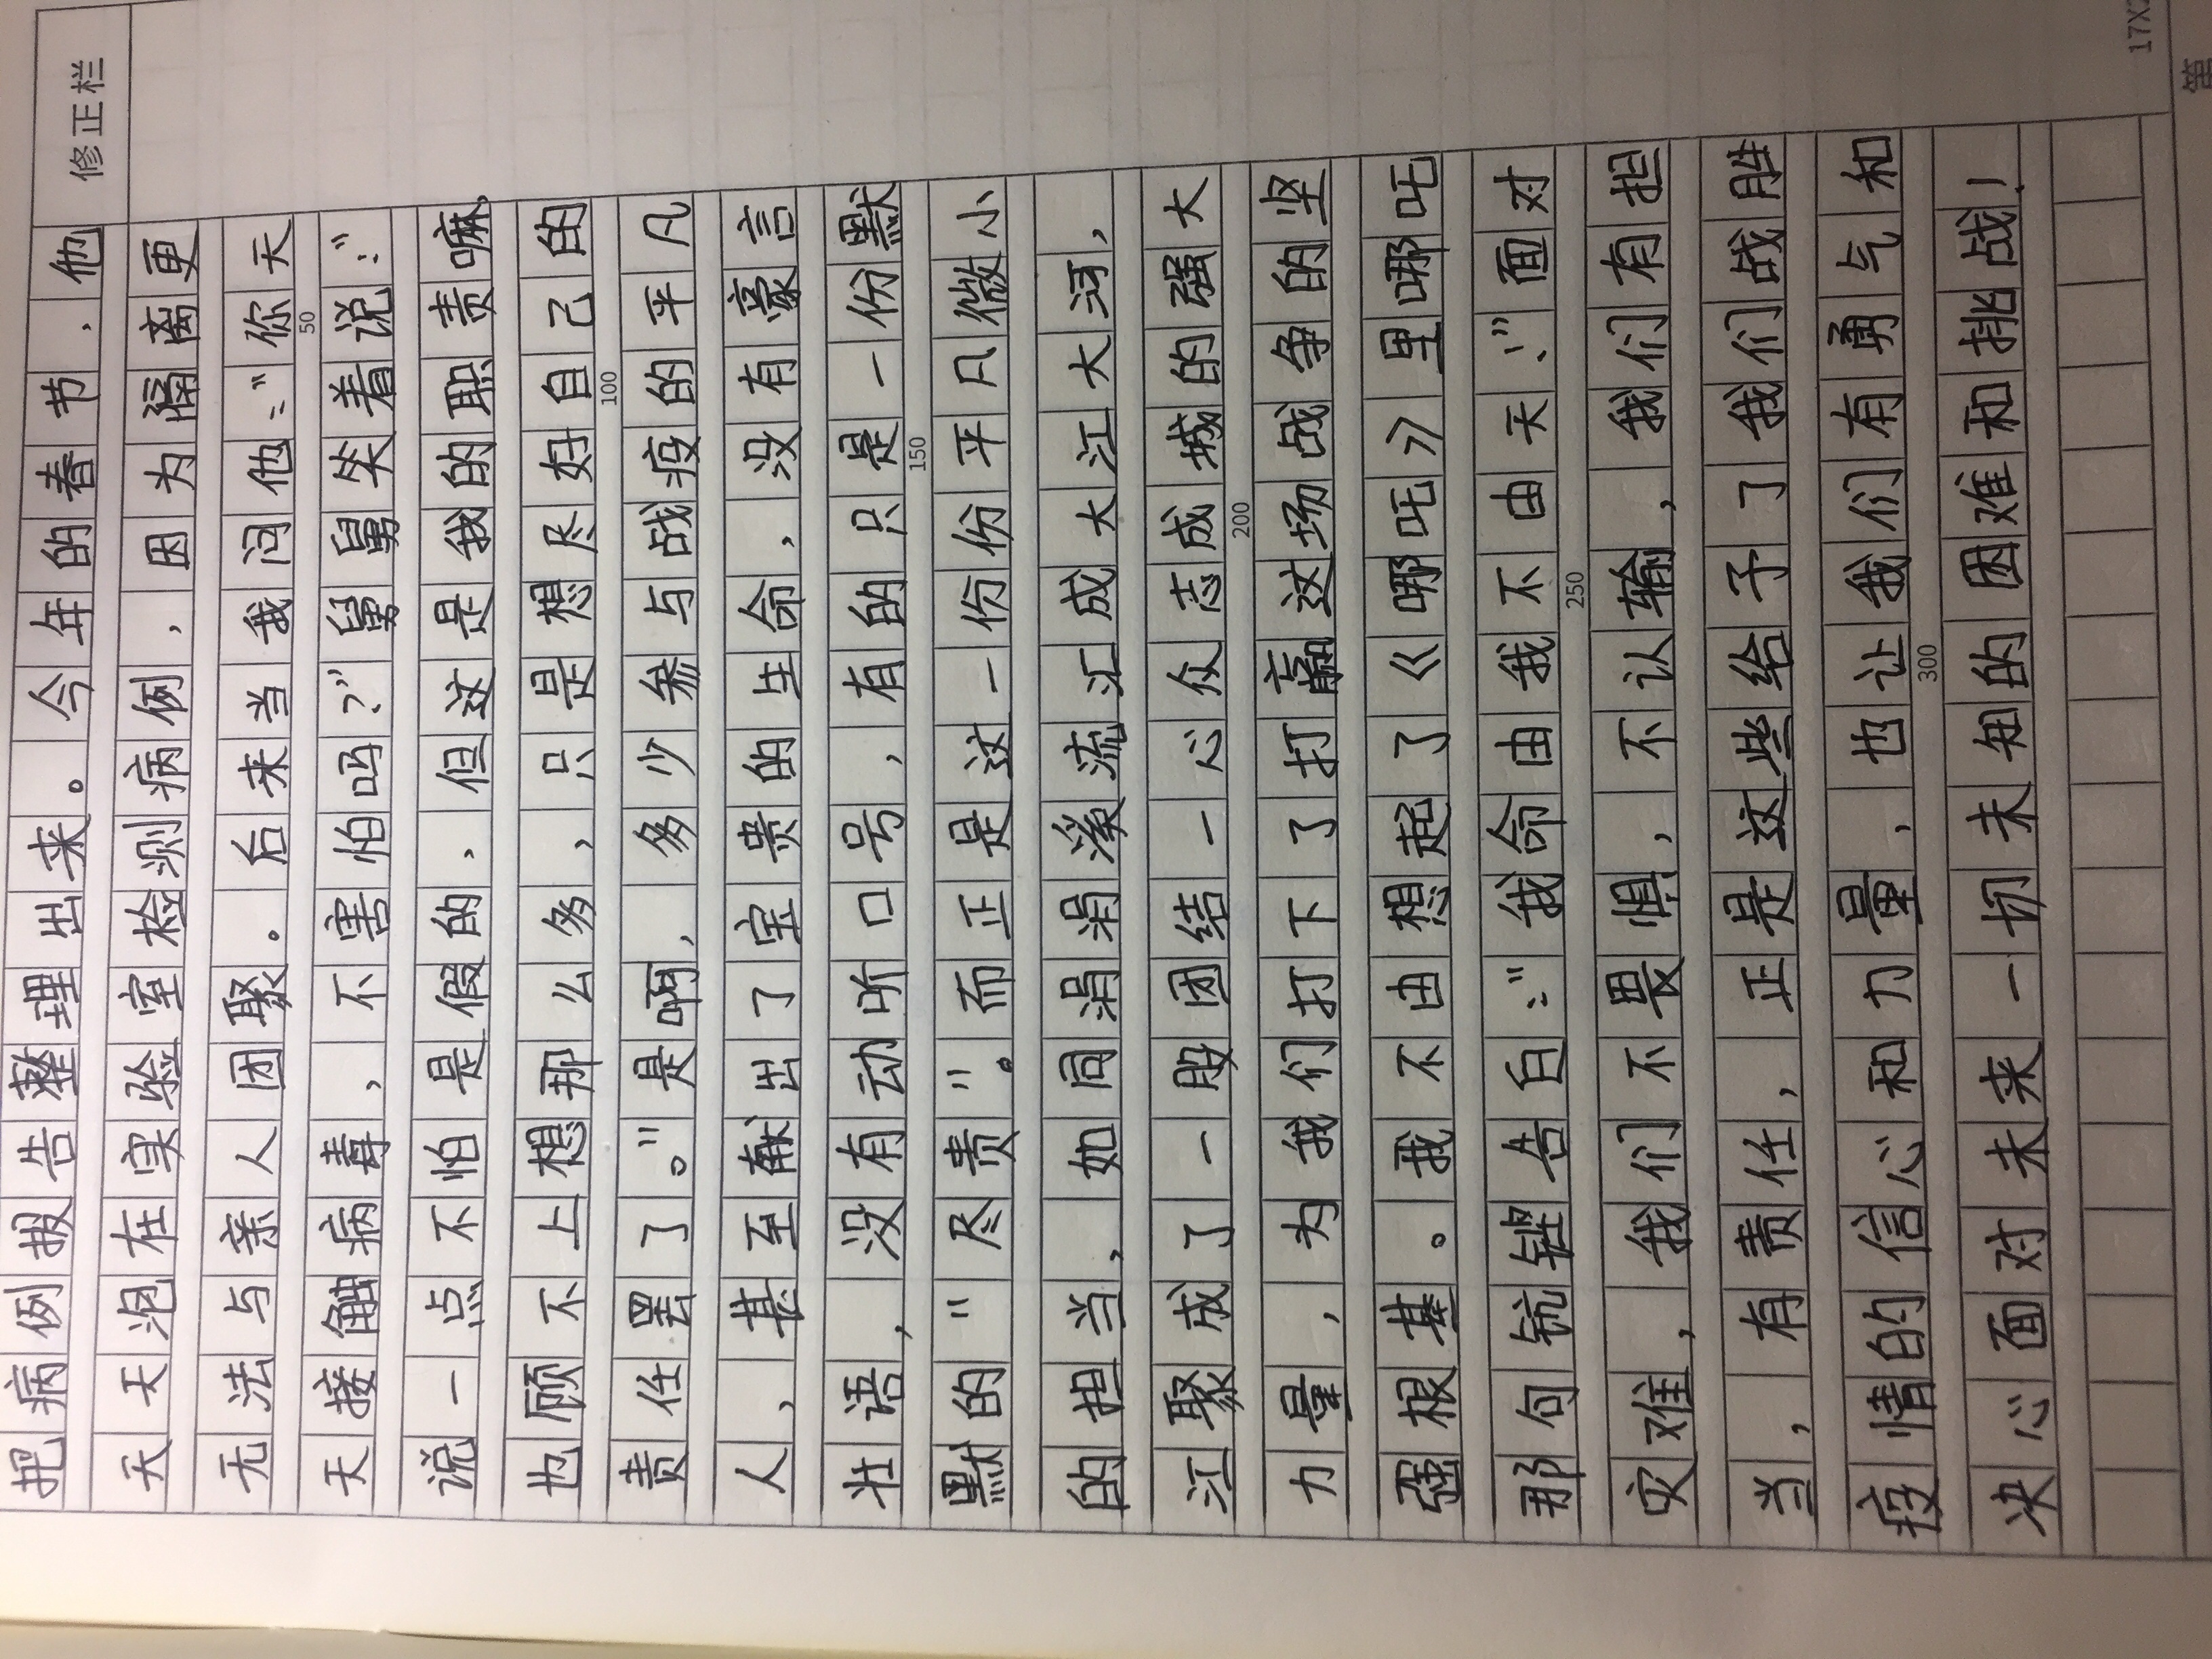 修正栏
把病例报告整理出来。今年的春节，他
天天泡在实验室检测病例，因为隔离更
无法与亲人团聚。后来当我问他：“你天
50
天接触病毒，不害怕吗？”舅舅笑着说：“
说一点不怕是假的，但这是我的职责嘛，
也顾不上想那么多，只是想尽好自己的
100
责任罢了。”是啊，多少参与战疫的平凡
人，甚至献出了宝贵的生命，没有豪言
壮语，没有动听口号，有的只是一份默
150
默的“尽责”。而正是这一份份平凡微小
的担当，如同涓涓溪流汇成大江大河，
江聚成了一股团结一心众志成城的强大
200
力量，为我们打下了打赢这场战争的坚
强根基。我不由想起了《哪吒》里哪吒
那句铿锵告白：“我命由我不由天！”面对
250
灾难，我们不畏惧，不认输，我们有担
当，有责任，正是这些给予了我们战胜
疫情的信心和力量，也让我们有勇气和
300
决心面对未来一切未知的困难和挑战！
17X2
第